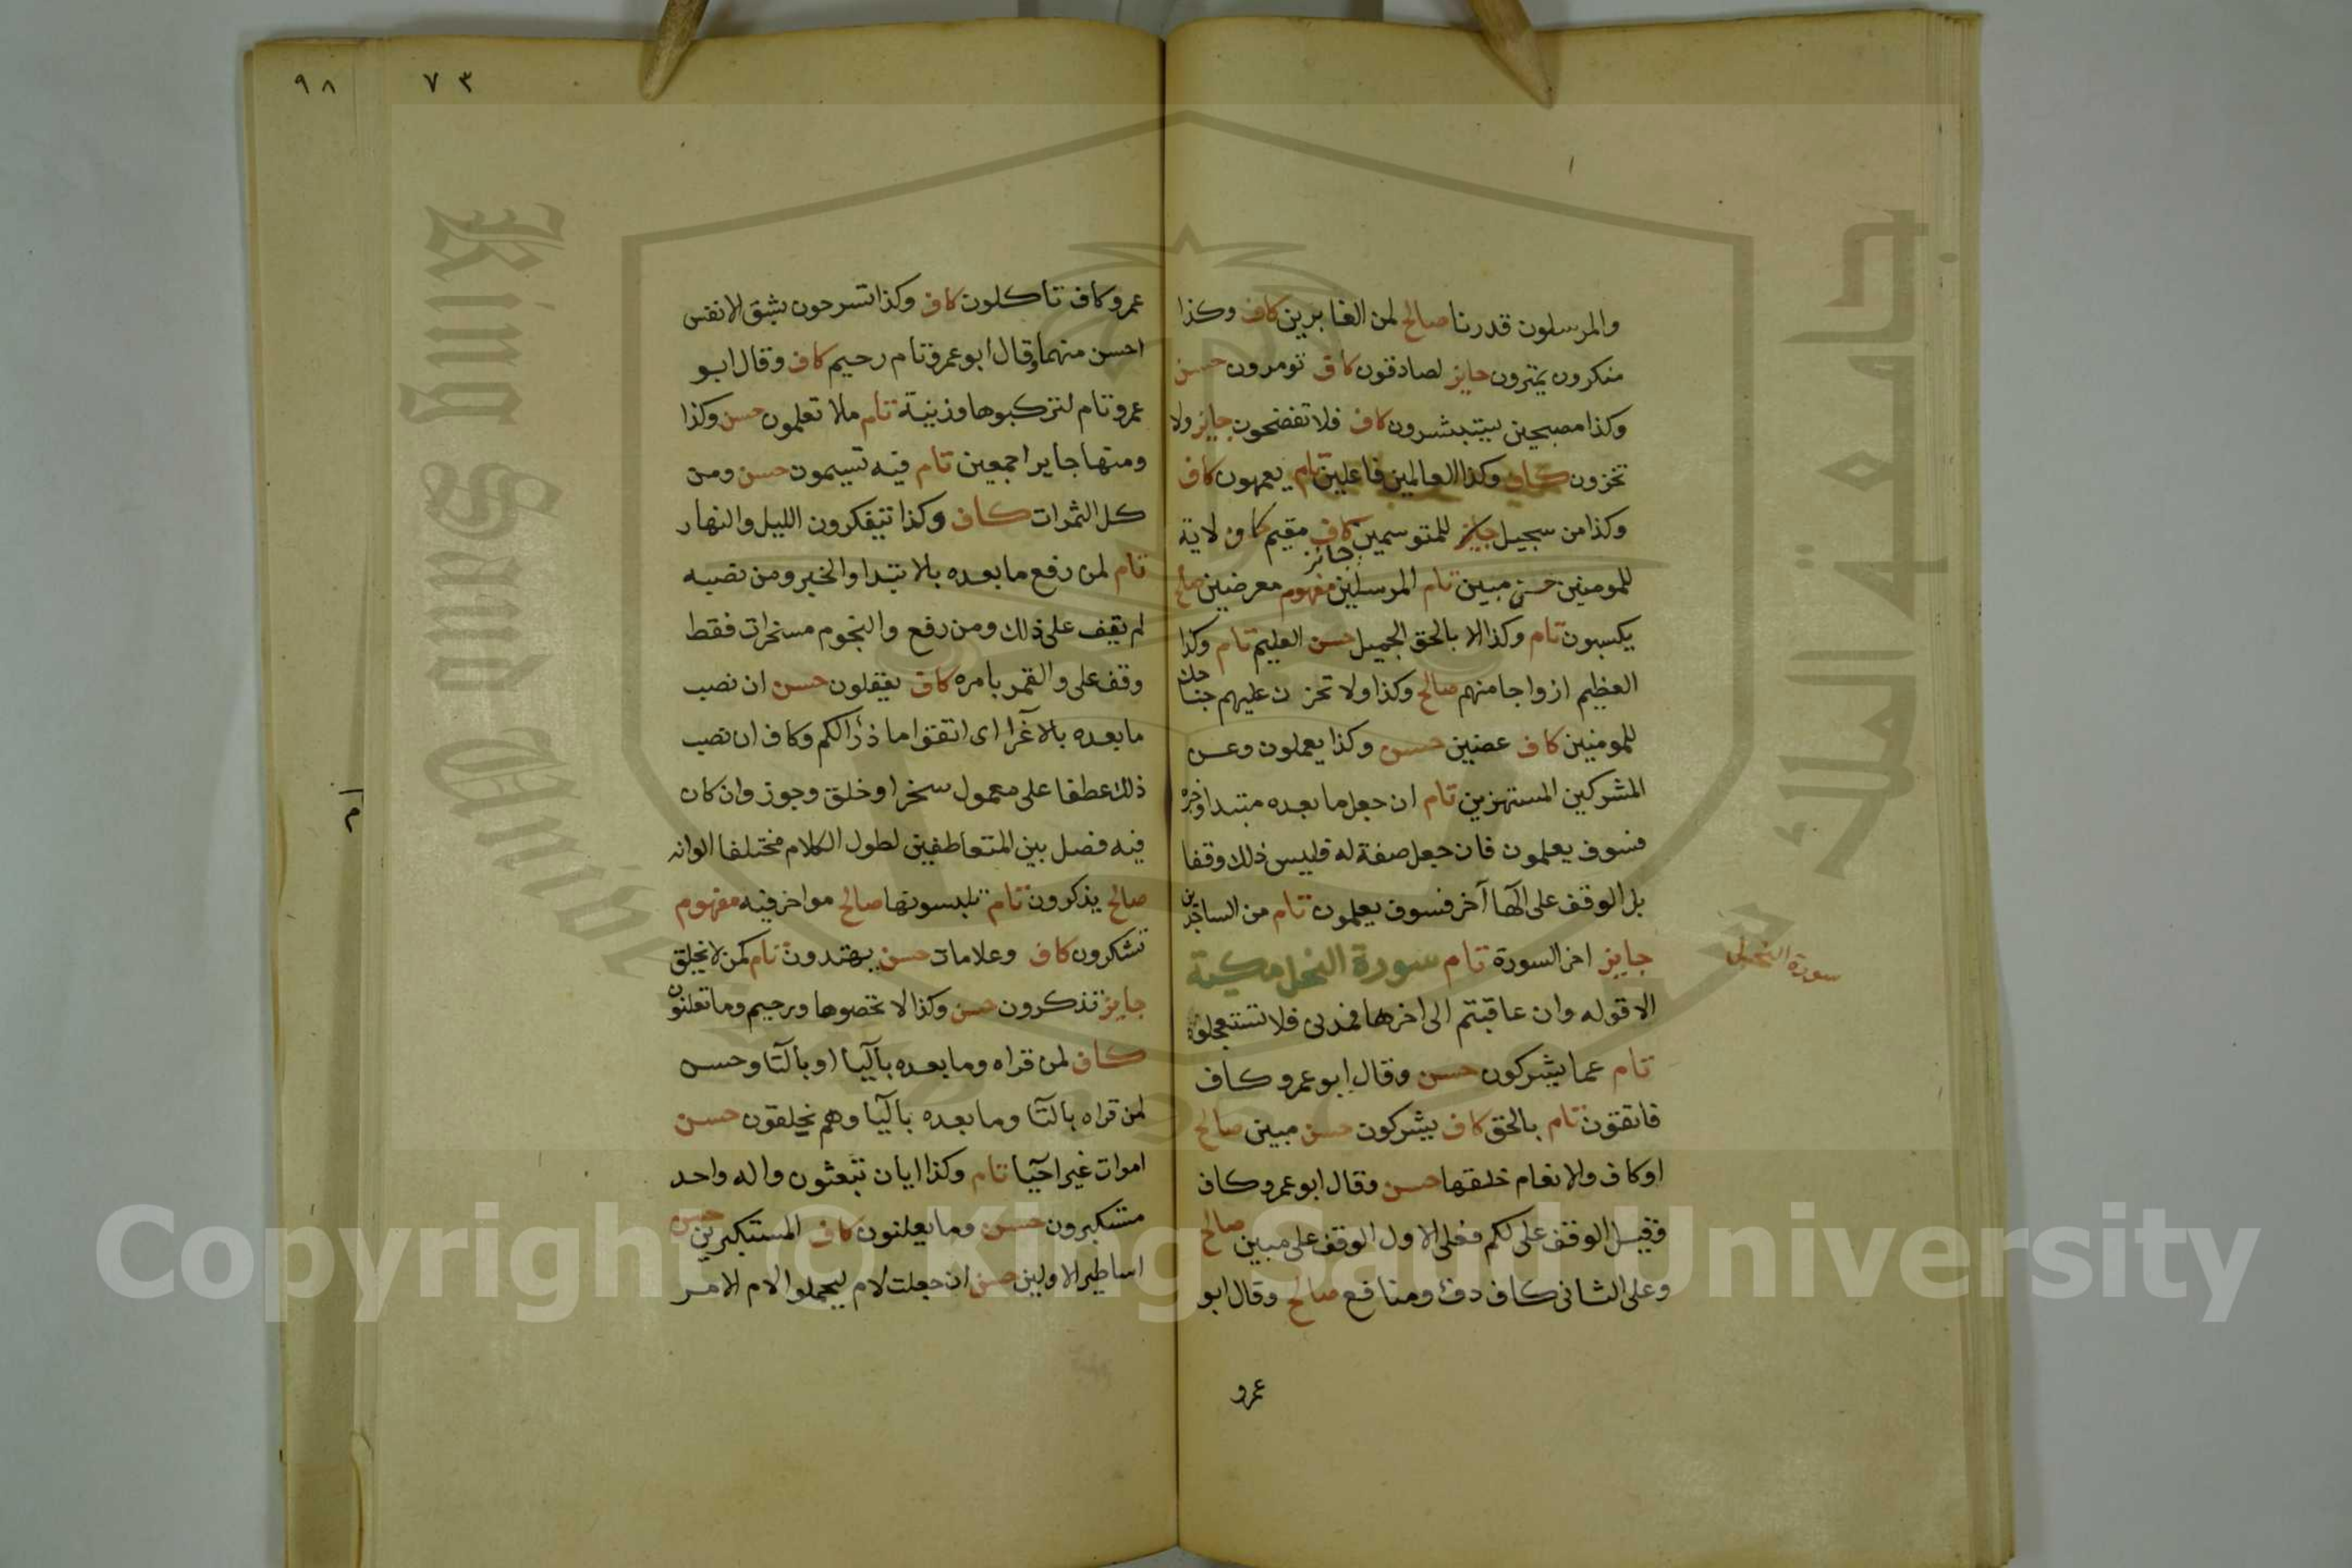 والمرسلون قدرنا صالح لمن الغابرين كاف وكذا
منكرون يمترون جايز لصادقون كاف تومرون حسن
وكذا مصبحين يستبشرون كاف فلا تفضحون جايز ولا
تخزون كاف وكذا العالمين فاعلين تام يعمهون كاف
وكذا من سجيل جايز للمتوسمين كاف مقيم كاف لاية
للمومنين حسن مبين تام المرسلين مفهوم جائز معرضين صالح
يكسبون تام وكذا الا بالحق الجميل حسن العليم تام وكذا
العظيم ازواجا منهم صالح وكذا ولا تحزن عليهم جناحك
للمومنين كاف عضين حسن وكذا يعملون وعن
المشركين المستهزين تام ان جعل ما بعده مبتدا وخبره
فسوف يعلمون فان جعل صفة له فليس ذلك وقفا
بل الوقف على الها آخر فسوف يعلمون تام من الساجدين
جايز اخر السورة تام سورة النحل مكية
سورة النحل
الا قوله وان عاقبتم الى اخرها فمدنى فلا تستعجلوه
تام عما يشركون حسن وقال ابو عمرو كاف
فاتقون تام بالحق كاف يشركون حسن مبين صالح
او كاف والانعام خلقها حسن وقال ابو عمرو كاف
وقيل الوقف على لكم فعلى الاول الوقف على مبين صالح
وعلى الثانى كاف دفء ومنافع صالح وقال ابو
عمرو
٩٨
٧٣
عمرو كاف تاكلون كاف وكذا تسرحون بشق الانفس
احسن منهما وقال ابو عمرو تام رحيم كاف وقال ابو
عمرو تام لتركبوها وزينة تام ما لا تعلمون حسن وكذا
ومنها جاير اجمعين تام فيه تسيمون حسن ومن
كل الثمرات كاف وكذا يتفكرون الليل والنهار
تام لمن رفع ما بعده بالابتدا والخبر ومن نصبه
لم يقف على ذلك ومن رفع والنجوم مسخرات فقط
وقف على والقمر بامره كاف يعقلون حسن ان نصب
ما بعده بالاغرا اى اتقوا ما ذرا لكم وكاف ان نصب
ذلك عطفا على معمول سخر او خلق وجوز وان كان
فيه فصل بين المتعاطفين لطول الكلام مختلفا الوانه
صالح يذكرون تام تلبسونها صالح مواخر فيه مفهوم
تشكرون كاف وعلامات حسن يهتدون تام كمن لا يخلق
جايز تذكرون حسن وكذا لا تحصوها ورحيم وما تعلنون
كاف لمن قراه وما بعده باليا او بالتا وحسن
لمن قراه بالتا وما بعده باليا وهم يخلقون حسن
اموات غير احيا تام وكذا ايان يبعثون واله واحد
مستكبرون حسن وما يعلنون كاف المستكبرين حسن
اساطير الاولين حسن ان جعلت لام ليحملوا لام الامر
Copyright © King Saud University
جامعة الملك سعود
King Saud University